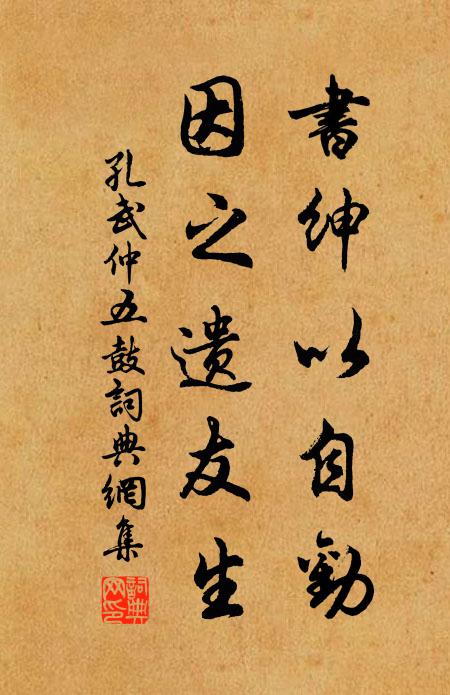 書紳以自勸
因之遺友生
孔武仲五鼓詞典網集
詞典
网印